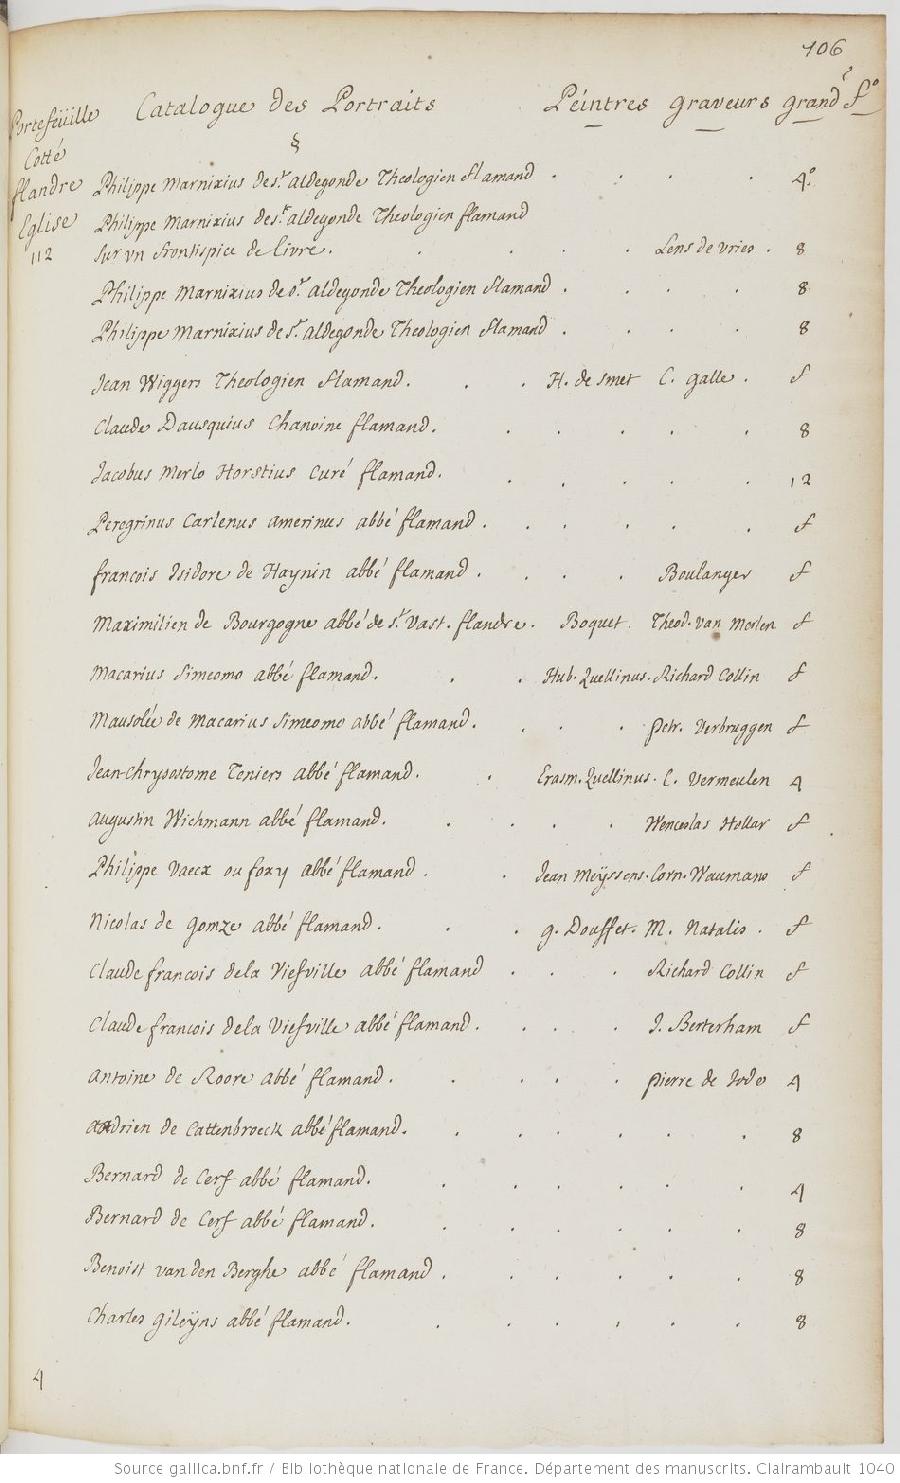 106
Portefeüille Catalogue des Portraits Peintres graveurs grandr fo
Cotté §
flandre Philippe Marnixius de sr. aldegonde Theologien flamand . . . . 4o.
Eglise Philippe Marnixius de sr. aldegonde Theologien flamand
112 sur vn frontispice de livre. . . . . Lens de vries . 8
Philippe Marnixius de sr. aldegonde Theologien flamand . . . . 8
Philippe Marnixius de sr. aldegonde Theologien flamand . . . . 8
Jean Wiggers Theologien flamand. . . H. de smet C. galle . f
Claude Dausquius Chanoine flamand. . . . . 8
Jacobus Merlo Horstius Curé flamand. . . . . . 12
Peregrinus Carlenus amerinus abbé flamand . . . . . . f
françois Isidore de Haynin abbé flamand . . . . Boulanger f
Maximilien de Bourgogne abbé de sr. vast. flandre. Boquet Theod. van Merlen f
Macarius Simeomo abbé flamand. . . Hub. Quellinus. Richard Collin f
Mausolée de Macarius Simeomo abbé flamand. . . . petr. Verbruggen f
Jean-Chrysostome Teniers abbé flamand. . Erasm. Quellinus. C. Vermeulen 4
augustin Wichmann abbé flamand. . . . . Wenceslas Hollar f
Philippe Vaecx ou foxy abbé flamand . . Jean Meÿssens. Corn. Waumans f
Nicolas de gomze abbé flamand. . . g. Douffet. M. Natalis . f
Claude francois dela Viefville abbé flamand . . . Richard Collin f
Claude francois dela Viefville abbé flamand. . . . J. Berterham f
antoine de Roore abbé flamand. . . . . pierre de Jode 4
adrien de Cattenbroeck abbé flamand. . . . . . 8
Bernard de Cerf abbé flamand. . . . . . 4
Bernard de Cerf abbé flamand. . . . . . 8
Benoist van den Berghe abbé flamand . . . . . 8
Charles gileÿns abbé flamand. . . . . . 8
4
Source gallica.bnf.fr / Bibliothèque nationale de France. Département des manuscrits. Clairambault 1040